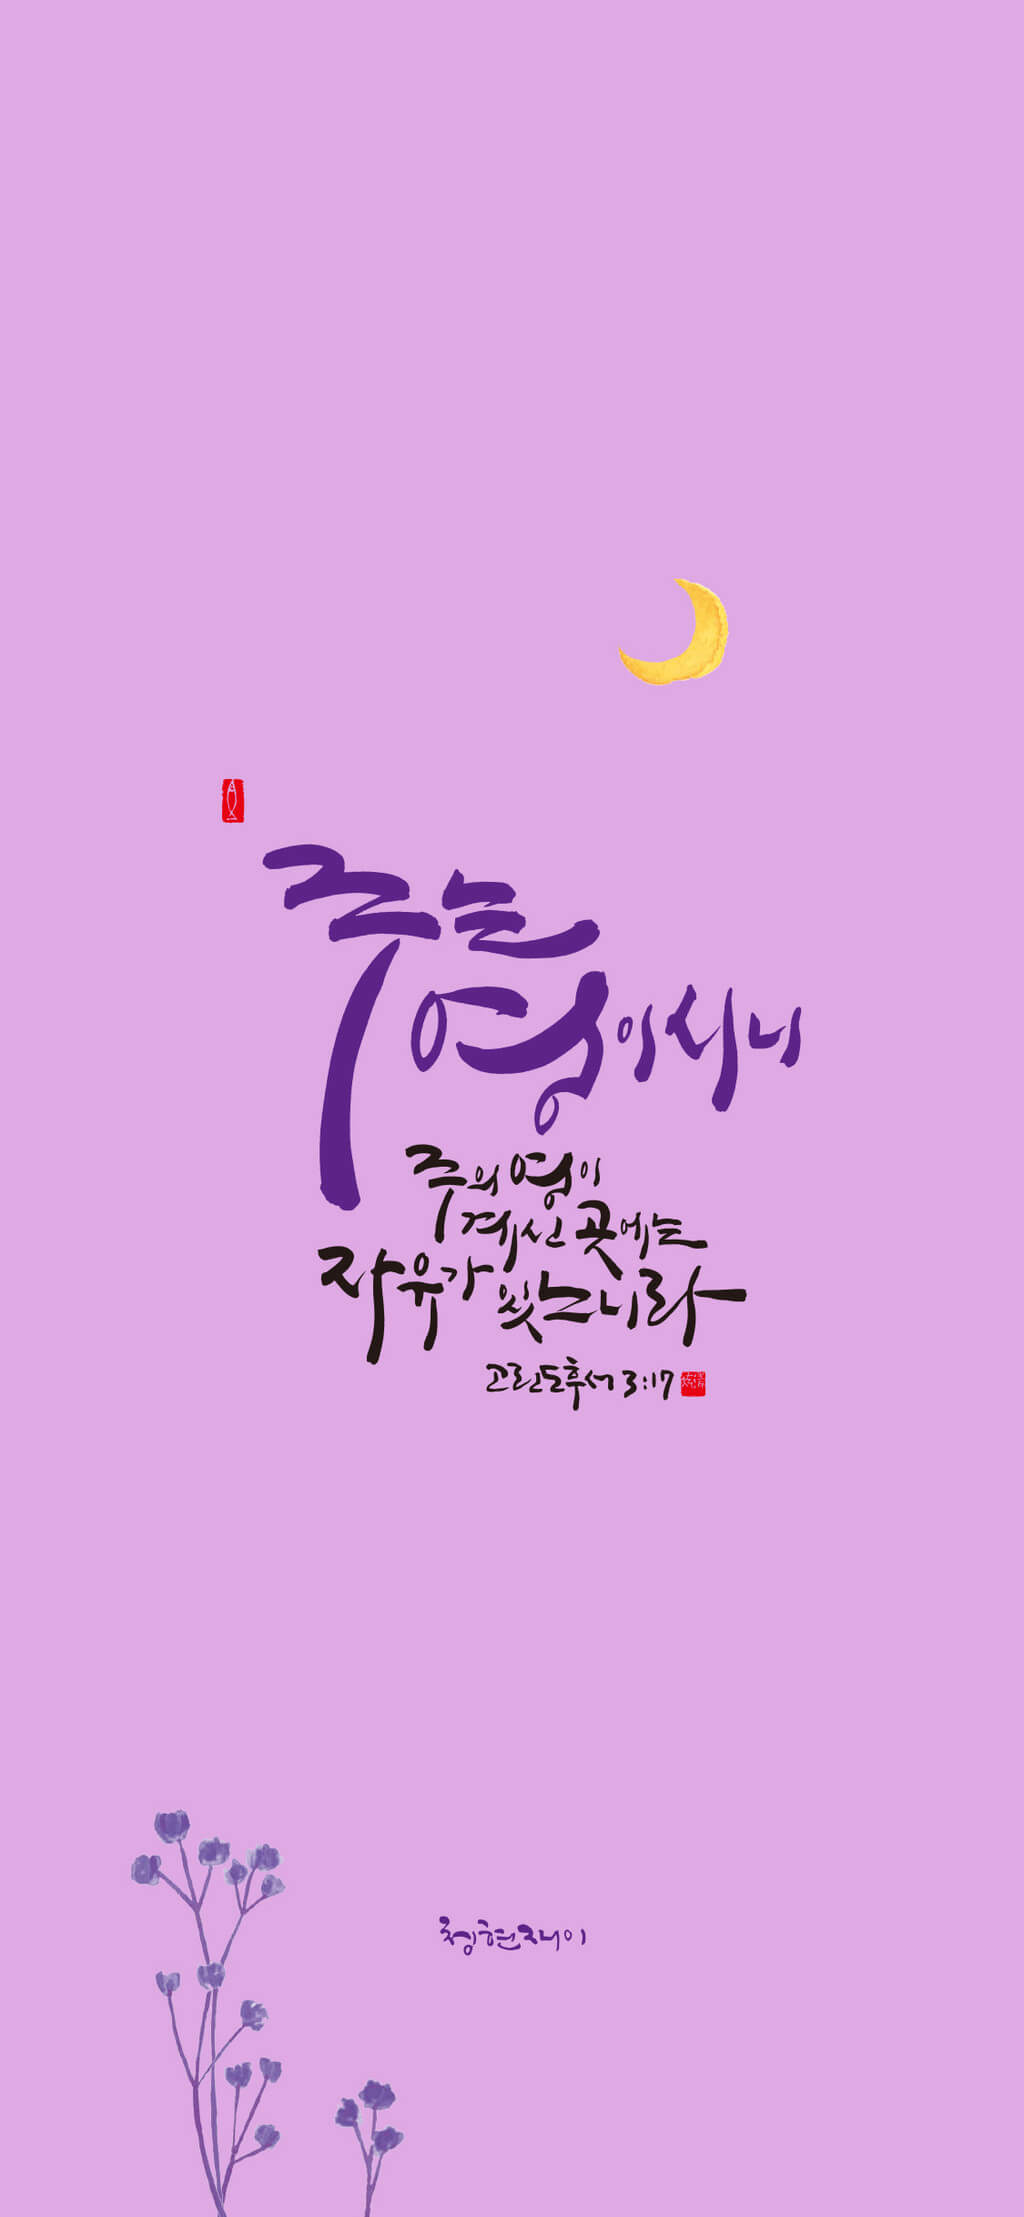 주는
영이시니
주의 영이
계신 곳에는
자유가 있느니라
고린도후서 3:17
청현재이